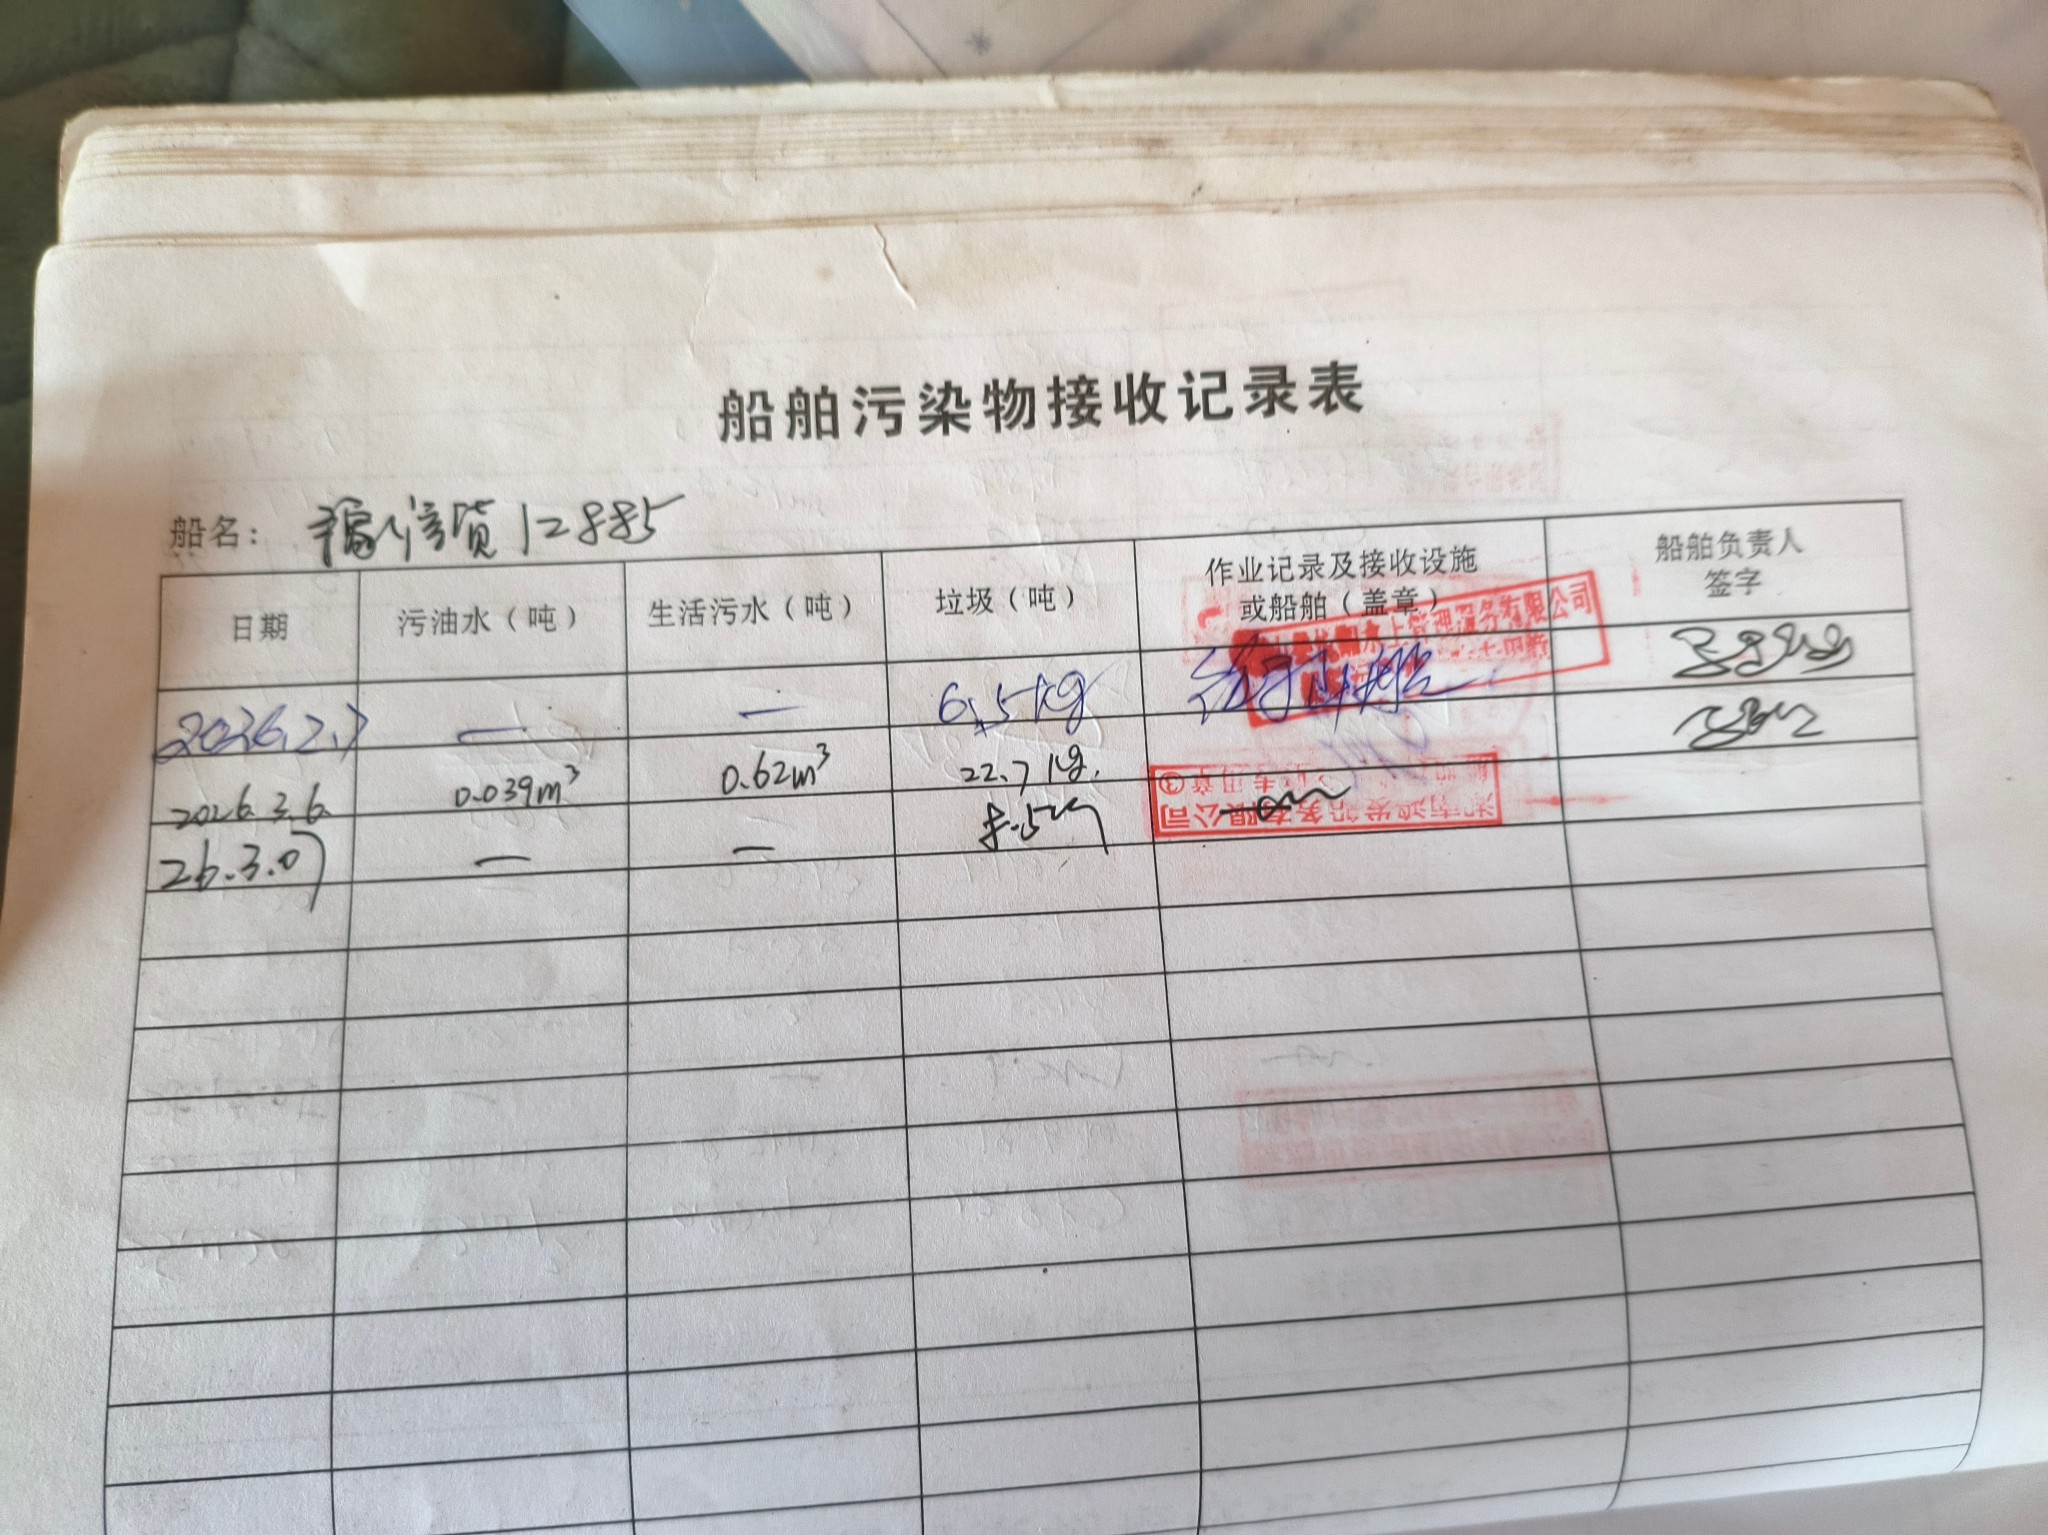 船舶污染物接收记录表
船名： 福信货12885
日期 污油水（吨） 生活污水（吨） 垃圾（吨） 作业记录及接收设施或船舶（盖章） 船舶负责人签字
2026.2.7 — — 6.5kg
2026.3.6 0.039m³ 0.62m³ 22.7kg.
湖南鸿发船务有限公司
专用章③
26.3.07 — — 8.5kg
水上管理服务有限公司